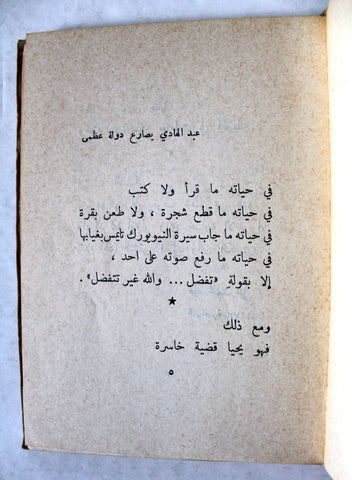 عبد الهادي يصارع دولة عظمى
في حياته ما قرأ ولا كتب
في حياته ما قطع شجرة ، ولا طعن بقرة
في حياته ما جاب سيرة النيويورك تايمس بغيابها
في حياته ما رفع صوته على احد ،
إلا بقولةِ «تفضل ... والله غير تتفضل» .
★
ومع ذلك
فهو يحيا قضية خاسرة
٥